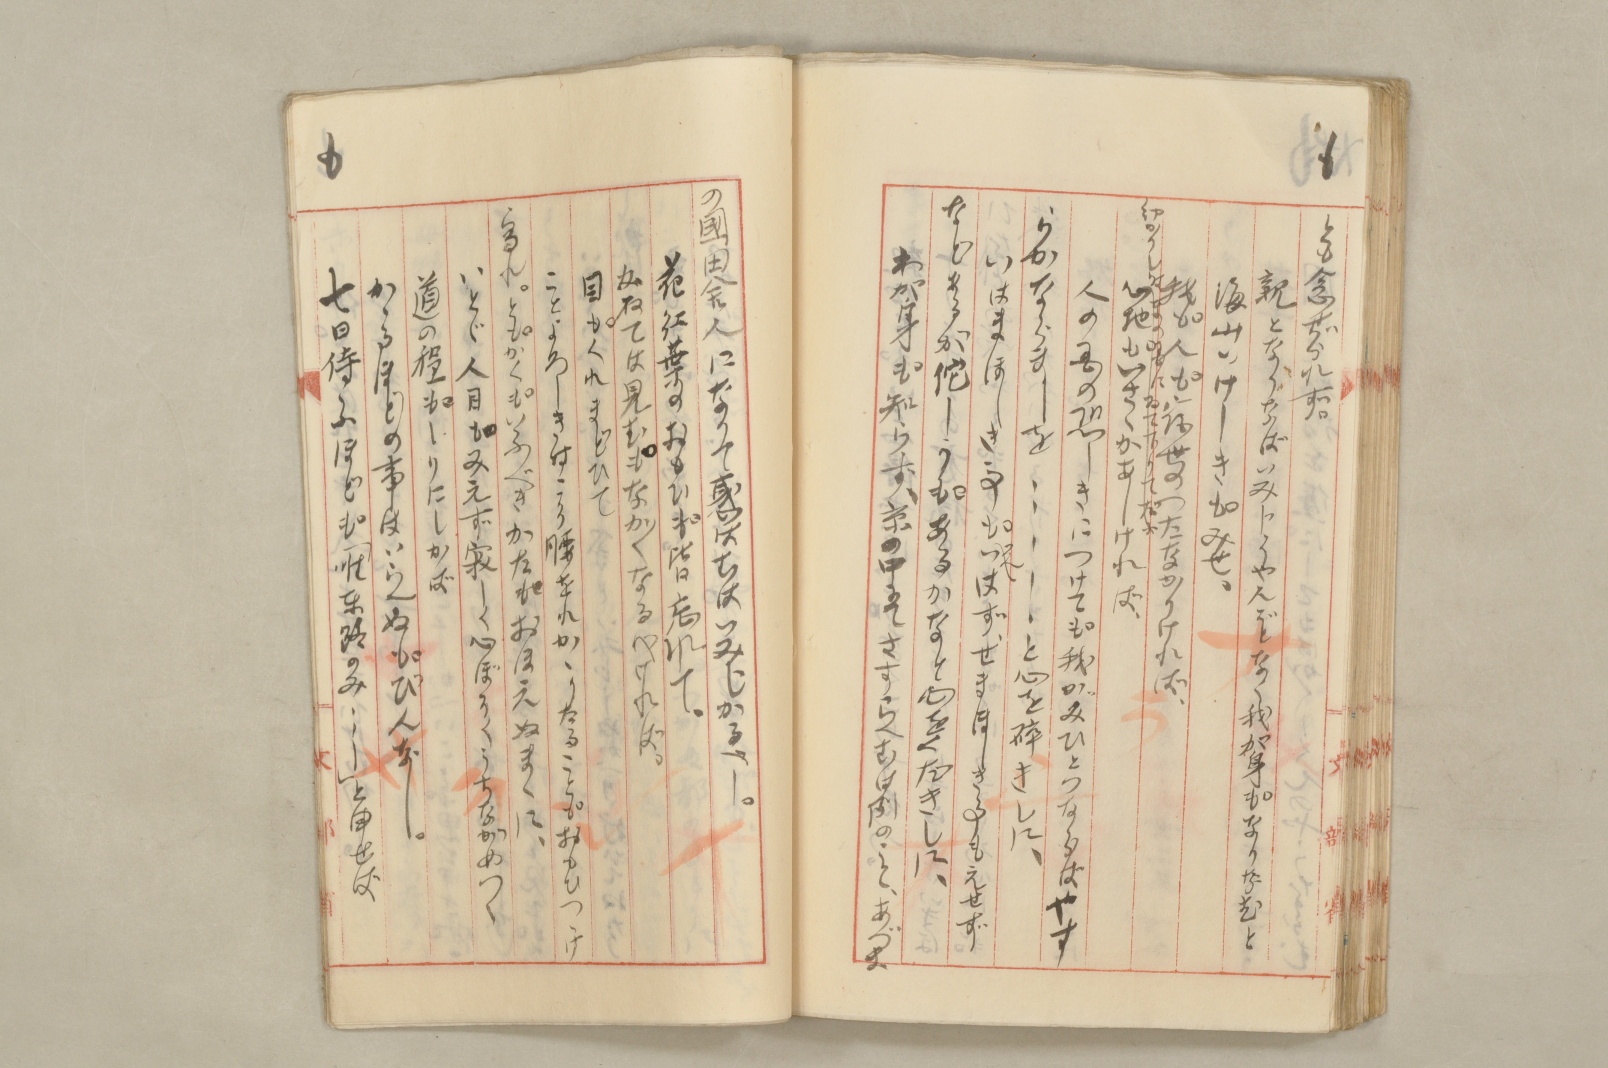 も
とも念ぜられず。
親となりなばいみじうやんごとなく我が身もなりなむと
海山いけしきもみせ、
我も人も宿世のつたなかりければ、
心地もいさゝかあしければ、
人の国の恐しきにつけても我がみひとつならばやす
らかならましを、、、、、と心を砕きしに、
いはまほしき事もえいはず、せまほしき事もえせず
などあるが侘しうもあるかなと心をくだきしに、
わが身も知らず、京の中にてさすらへむは例のこと、あづま
の國田舎人になりて惑はむはいみじかるべし。
花紅葉のおもひも皆忘れて。
かねては見むもなかくなるべければ。
目もくれまどひて
ことよろしきはこう腰をれかゝりたることもおもひつゞけ
られ。ともかくもいふべきかたもおぼえぬまゝに、
いとゞ人目もみえず寂しく心ぼそくうちながめつゝ
道の程もしりにしかば
かゝるほどの事はいらへぬもびんなし。
七日侍ふほども唯東路のみ・・し」と申せば
も
文部省